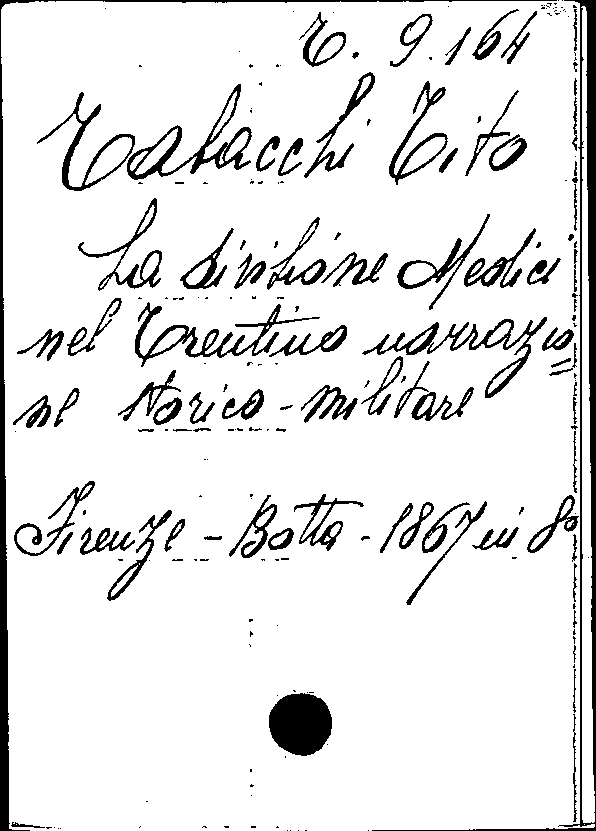 T. 9.164
Tabacchi Tito
La divisione Medici
nel Trentino narrazio=
ne storico-militare
Firenze - Botta - 1867 in 8°